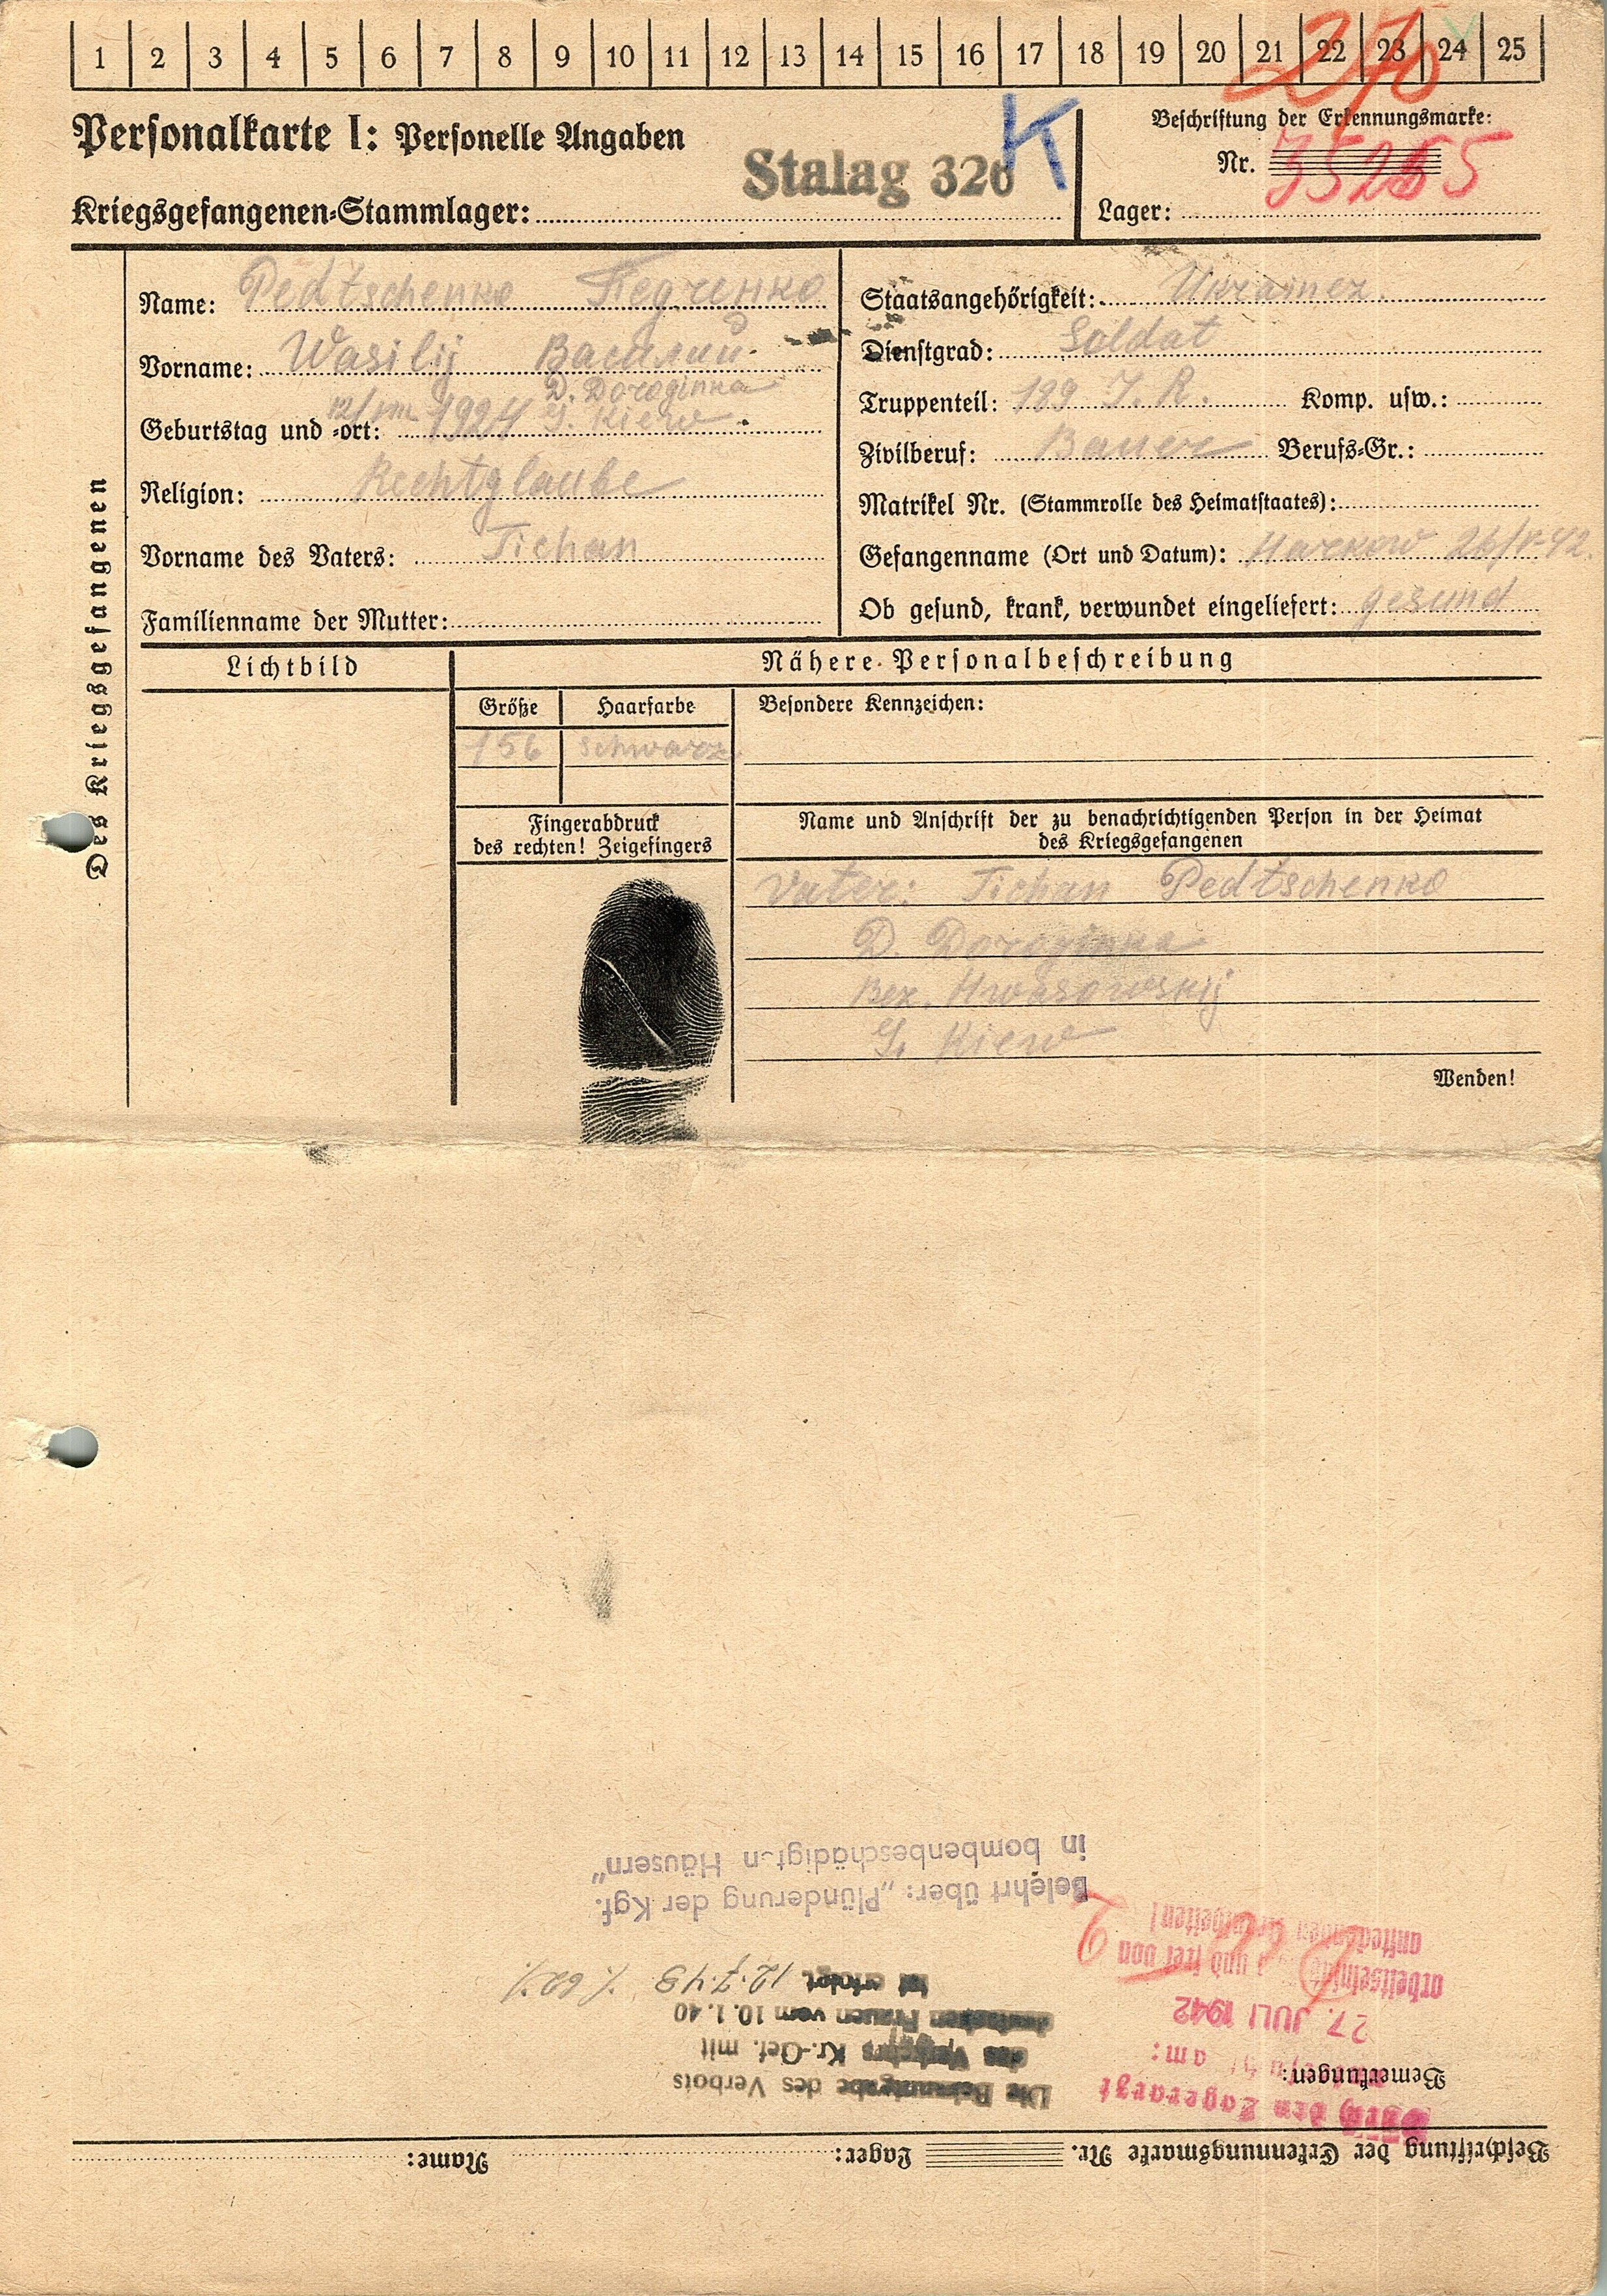 1 2 3 4 5 6 7 8 9 10 11 12 13 14 15 16 17 18 19 20 21 22 23 24 25
Personalkarte I: Personelle Angaben
Stalag 326 K
Kriegsgefangenen-Stammlager:
Beschriftung der Erkennungsmarke:
Nr. 35255
Lager:
Des Kriegsgefangenen
Name: Pedtschenko Педченко
Vorname: Wasilij Василий
D. Doroginka
Geburtstag und -ort: 12/VIII 1924 G. Kiew
Religion: Rechtglaube
Vorname des Vaters: Tichan
Familienname der Mutter:
Staatsangehörigkeit: Ukrainer.
Dienstgrad: Soldat
Truppenteil: 199 I.R. Komp. usw.:
Zivilberuf: Bauer Berufs-Gr.:
Matrikel Nr. (Stammrolle des Heimatstaates):
Gefangenname (Ort und Datum): Harkow 26/V-42.
Ob gesund, krank, verwundet eingeliefert: gesund
Lichtbild
Nähere Personalbeschreibung
Größe Haarfarbe Besondere Kennzeichen:
156 schwarz
Fingerabdruck
des rechten! Zeigefingers
Name und Anschrift der zu benachrichtigenden Person in der Heimat
des Kriegsgefangenen
Vater: Tichan Pedtschenko
D. Doroginka
Bez.
G. Kiew
Wenden!
Beschriftung der Erkennungsmarke Nr. Lager: Name:
Bemerkungen:
Durch den Lagerarzt
am:
27. JULI 1942
arbeitseinsatz und frei von
ansteckenden
Die Bekanntgabe des Verbots
des Verkehrs Kr.-Gef. mit
deutschen Frauen vom 10.1.40
ist erfolgt 12.7.43
Belehrt über: „Plünderung der Kgf.
in bombenbeschädigten Häusern"